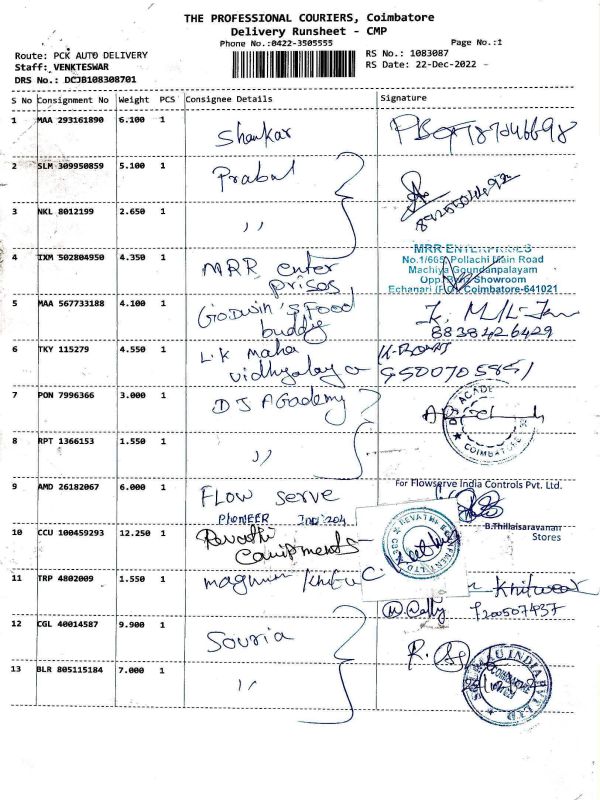 THE PROFESSIONAL COURIERS, Coimbatore
Delivery Runsheet - CMP
Phone No.:0422-3505555
Page No.:1
Route: PCK AUTO DELIVERY
RS No.: 1083087
Staff: VENKTESWAR
RS Date: 22-Dec-2022
DRS No.: DCJB108308701
S No Consignment No Weight PCS Consignee Details Signature
1 MAA 293161890 6.100 1 Shankar
2 SLM 309950859 5.100 1 Prabal
3 NKL 8012199 2.650 1 ,,
4 IXM 502804950 4.350 1 MRR enter
prises
MRR ENTERPRISES
No.1/665, Pollachi Main Road
Machiya Goundanpalayam
Opp. Showroom
Echanari (P.O) Coimbatore-641021
5 MAA 567733188 4.100 1 Godwin's Food
buddy
8838426429
6 TKY 115279 4.550 1 L.K maha
vidhyalaya
9500705851
7 PON 7996366 3.000 1 DJ Academy
COIMBATORE
8 RPT 1366153 1.550 1 ,,
9 AMD 26182067 6.000 1 FLOW serve
For Flowserve India Controls Pvt. Ltd.
B.Thillaisaravanan
Stores
10 CCU 100459293 12.250 1 Revathi
Equipments
11 TRP 4802009 1.550 1 magnum
12 CGL 40014587 9.900 1 Souria
13 BLR 805115184 7.000 1 ,,